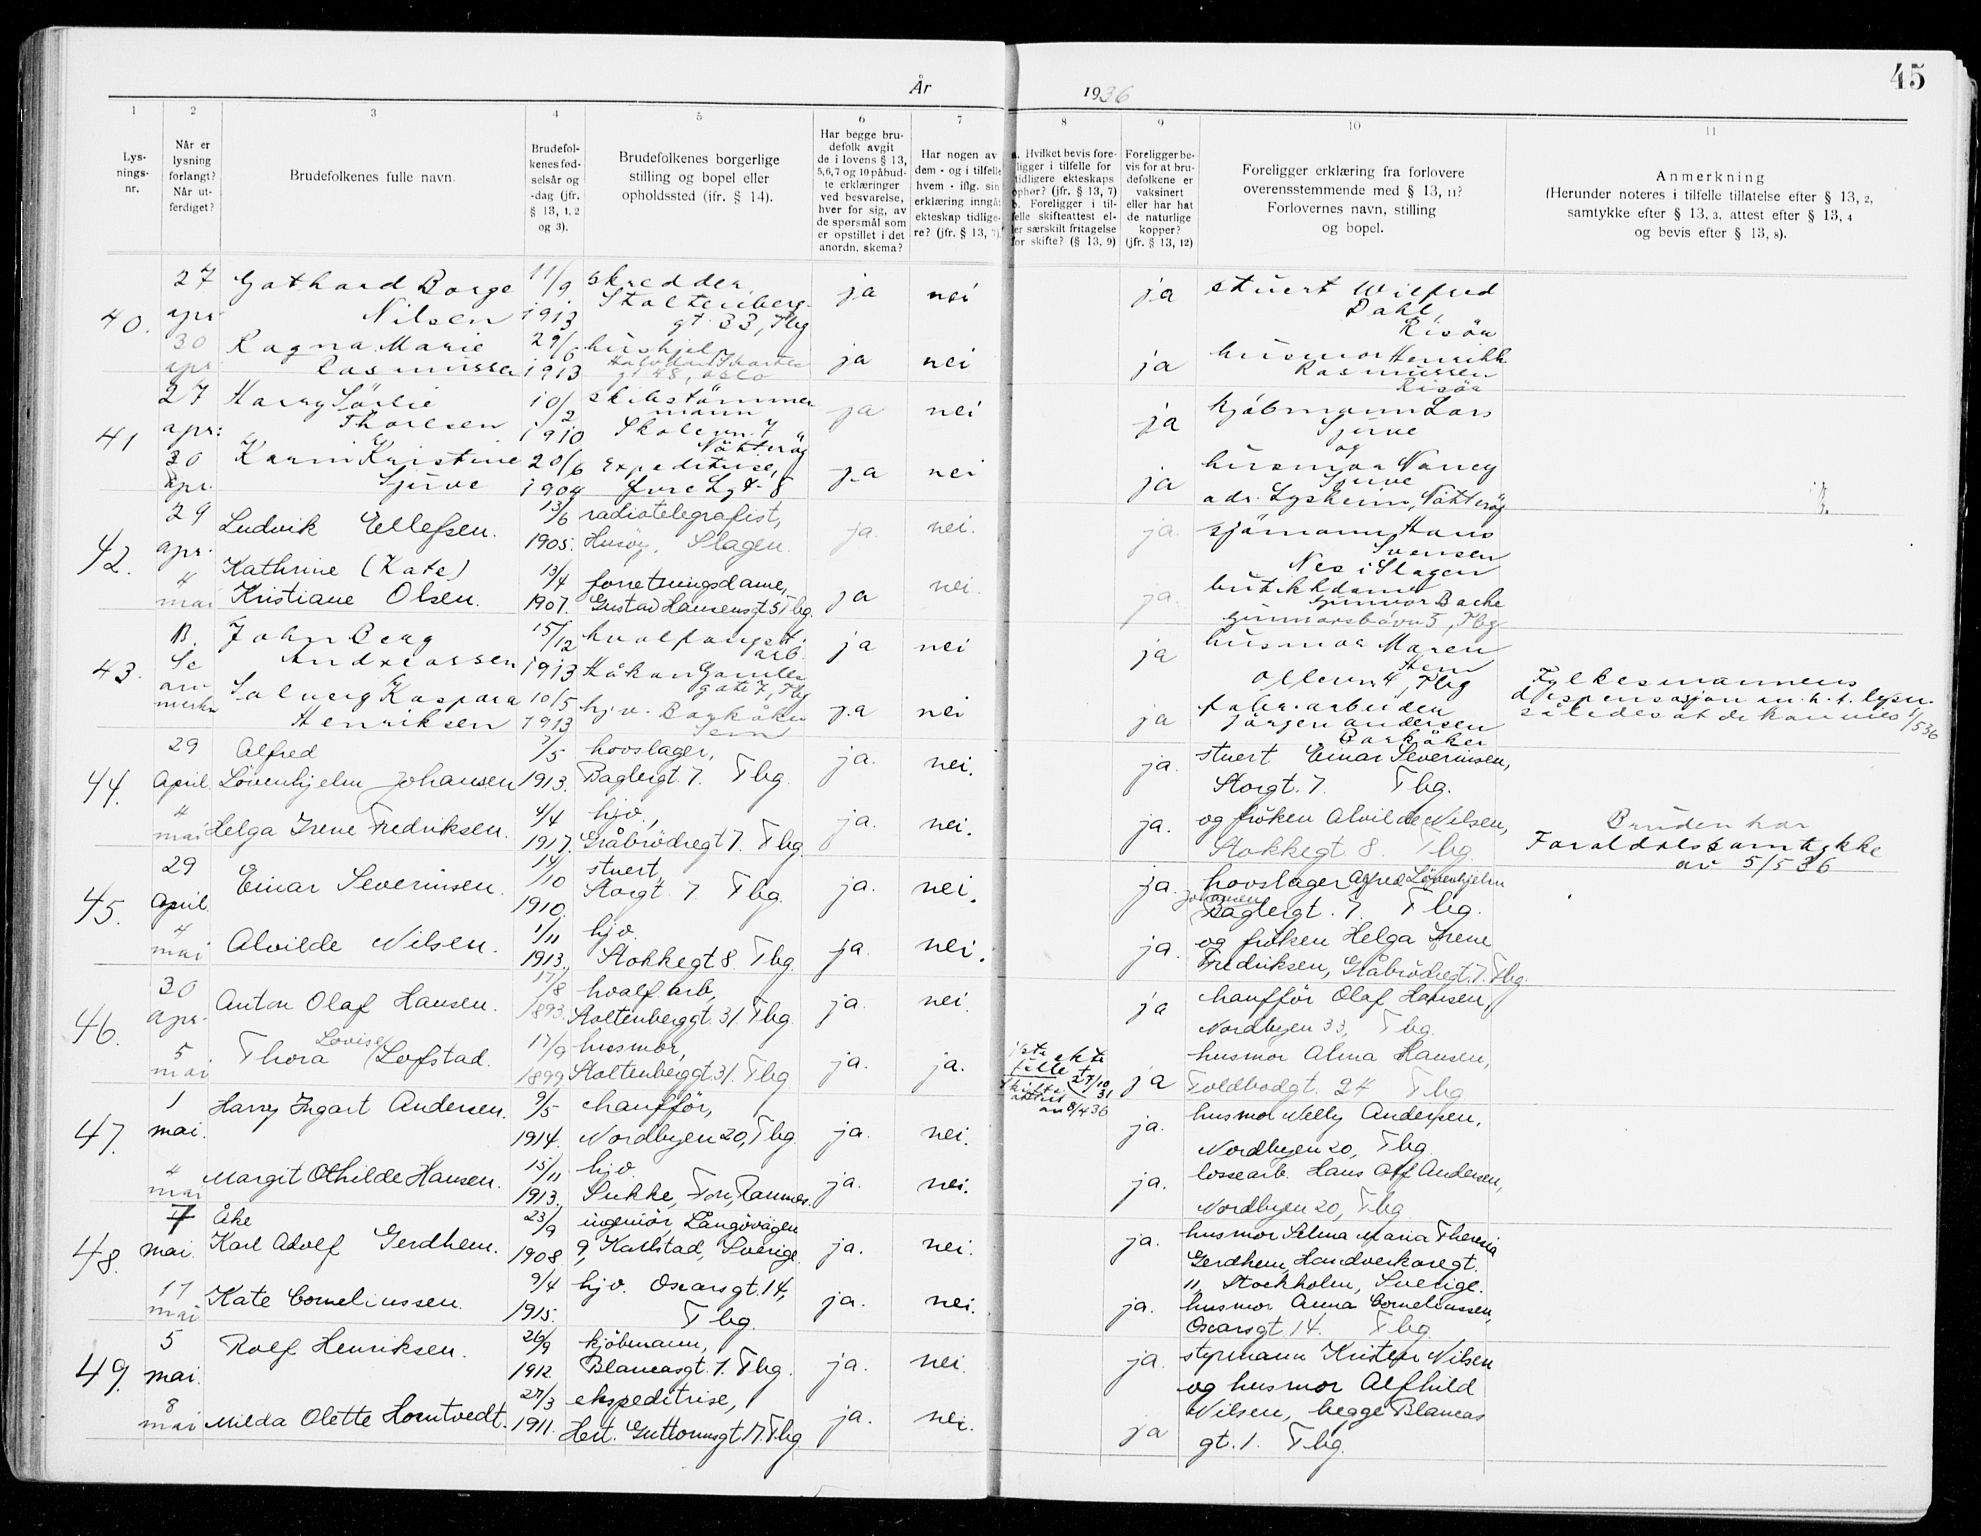 45
År 1936
1 2 3 4 5 6 7 8 9 10 11
Lys-
nings-
nr.
Når er
lysning
forlangt?
Når ut-
ferdiget?
Brudefolkenes fulle navn.
Brudefol-
kenes fød-
selsår og
-dag (jfr.
§ 13, 1, 2
og 3).
Brudefolkenes borgerlige
stilling og bopel eller
opholdssted (ifr. § 14).
Har begge bru-
defolk avgit
de i lovens § 13,
5,6,7 og 10 påbud-
te erklæringer
ved besvarelse,
hver for sig, av
de spørsmål som
er opstillet i det
anordn. skema?
Har nogen av
dem - og i tilfelle
hvem - iflg. sin
erklæring inngåt
ekteskap tidlige-
re? (jfr. § 13, 7)
a. Hvilket bevis fore-
ligger i tilfelle for
tidligere ekteskaps
ophør? (jfr. § 13, 7)
b. Foreligger i til-
felle skifteattest el-
ler særskilt fritagelse
for skifte? (§ 13, 9)
Foreligger be-
vis for at bru-
defolkene er
vaksinert
eller har hat
de naturlige
kopper?
(jfr. § 13, 12)
Foreligger erklæring fra forlovere
overensstemmende med § 13, 11?
Forlovernes navn, stilling
og bopel.
Anmerkning
(Herunder noteres i tilfelle tillatelse efter § 13, 2,
samtykke efter § 13, 3, attest efter § 13, 4
og bevis efter § 13, 8).
40.
27
apr
Gothard Borge
Nilsen
11/9
1913
skredder,
Stoltenberg-
gt. 33, Tbg
ja nei ja
stuert Wilfred
Dahl,
Risör
30
apr
Ragna Marie
Rasmussen
29/6
1913
hushjel
48, Oslo
ja nei ja
husmor Henrikk
Rasmussen
Risör
41
27
apr:
Harry Sörlie
Thorsen
10/2
1910
skibstömmer
mann
Skolevn. 7
Nötteröy
ja nei ja
kjöbmann Lars
Sjuve
og
30
apr.
Karin Kristine
Sjuve
20/6
1904
Expeditrise,
ja nei ja
husmor Nancy
Sjuve
adr. Lysheim, Nötteröy
42.
29
apr.
Ludvik Ellefsen.
13/6
1905.
radiotelegrafist,
Husöy, Slagen.
ja. nei. ja.
sjömann Hans
Svensen
Nes i Slagen
4
mai
Kathrine (Kate)
Kristiane Olsen.
13/4
1907.
forretningsdame,
Gustav Hansensgt. 5 Tbg.
ja nei. ja.
butikkdame
Gunnor Bache
Gunnarsbövn 5, Tbg
43.
B.
Se
an-
merkn
John Berg
Andreassen
15/12
1913
hvalfangst
arb.
Håkon Gamles
gate 7, Tbg
ja nei ja
husmor Maren
Hem
Ollevn. 4, Tbg
Solveig Kaspara
Henriksen
10/5
1913
hjv. Barkåker
Sem
ja nei ja
fabr. arbeider
Jörgen Andersen
Barkåker
Fylkesmannens
dispensasjon m.h.t. lysn.
således at de kan vies 1/5 36
44.
29
April
Alfred
Lövenhjelm Johansen
7/5
1913.
hovslager,
Baglergt. 7. Tbg.
ja. nei. ja.
stuert Einar Severinsen,
Storgt. 7. Tbg.
4
mai
Helga Irene Fredriksen.
4/4
1917.
hjv.,
Gråbrödregt 7. Tbg.
ja. nei. ja.
og fröken Alvilde Nilsen,
Stokkegt 8. Tbg.
Bruden har
Foreldresamtykke
av 5/5 36
45.
29
April
Einar Severinsen.
14/10
1910.
stuert,
Storgt. 7 Tbg.
ja. nei. ja.
hovslager Alfred Lövenhjelm
Johansen
Baglergt. 7. Tbg.
4
mai
Alvilde Nilsen.
1/11
1913.
hjv.
Stokkegt 8. Tbg.
ja. nei. ja.
og fröken Helga Irene
Fredriksen, Gråbrödregt. 7. Tbg.
46.
30
apr.
Anton Olaf Hansen.
17/8
1893.
hvalf. arb,
Stoltenberggt. 31. Tbg.
ja. nei. ja
chaufför Olaf Hansen,
Nordbyen 33, Tbg.
5
mai
Lovise
Thora Lofstad.
17/9
1899
husmor,
Stoltenberggt. 31. Tbg
ja. ja.
1ste ekte
felle †
27/10
31
Skifte
attest
av 8/4 36
ja
husmor Alma Hansen,
Toldbodgt. 24 Tbg
47.
1
mai.
Harry Ingart Andersen.
9/5
1914.
chaufför,
Nordbyen 20, Tbg.
ja. nei. ja.
husmor Nelly Andersen,
Nordbyen 20, Tbg.
4
mai
Margit Othilde Hansen.
15/11
1913.
hjv.
Sukke, Fon, Ramnes.
ja. nei. ja.
lossearb. Hans Olf Andersen,
Nordbyen 20, Tbg
48.
7
mai.
Åke
Karl Adolf Gerdhem.
23/9
1908
ingeniör, Långövägen
9, Karlstad, Sverige.
ja. nei. ja.
husmor Selma Maria Theresia
Gerdhem, Handverkaregt.
11, Stockholm, Sverige.
17
mai
Kate Corneliussen.
9/4
1915.
hjv. Oscarsgt. 14,
Tbg.
ja. nei. ja.
husmor Anna Corneliussen,
Oscarsgt. 14. Tbg.
49.
5
mai.
Rolf Henriksen.
26/9
1912
kjöbmann,
Blancasgt. 1. Tbg.
ja. nei. ja.
styrmann Kristen Nilsen
og husmor Alfhild
8
mai
Milda Olette Horntvedt.
27/3
1911.
ekspeditrise,
Hert. Guttormsgt 17. Tbg.
ja. nei. ja
Nilsen, begge Blancas
gt. 1. Tbg.